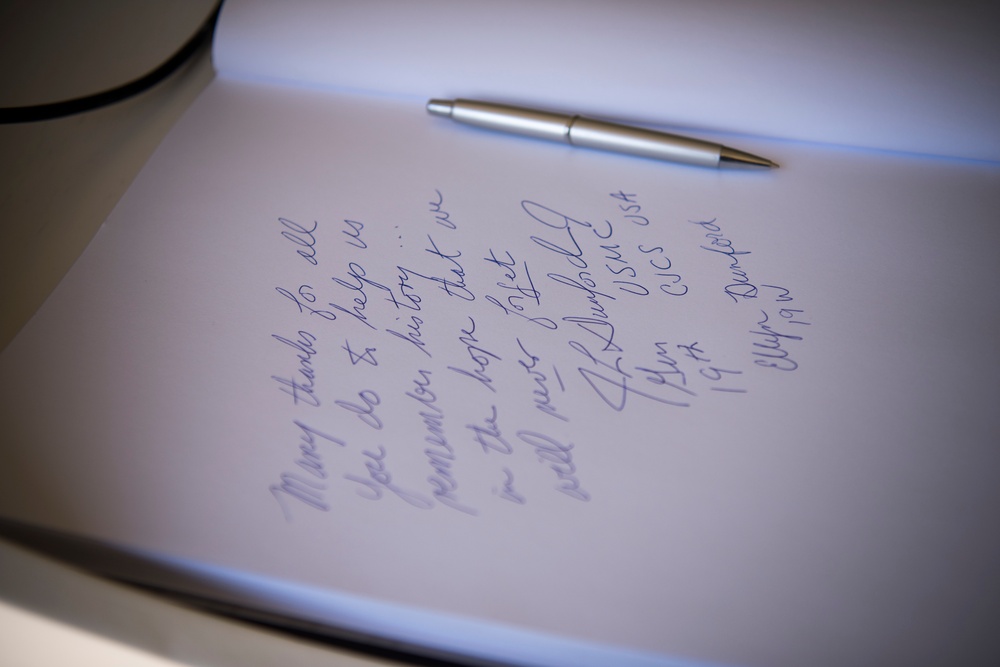 Many thanks for all
you do to help us
remember history...
in the hope that we
will never forget
JF Dunford Jr
Gen USMC
19th CJCS USA
Ellyn Dunford
19W